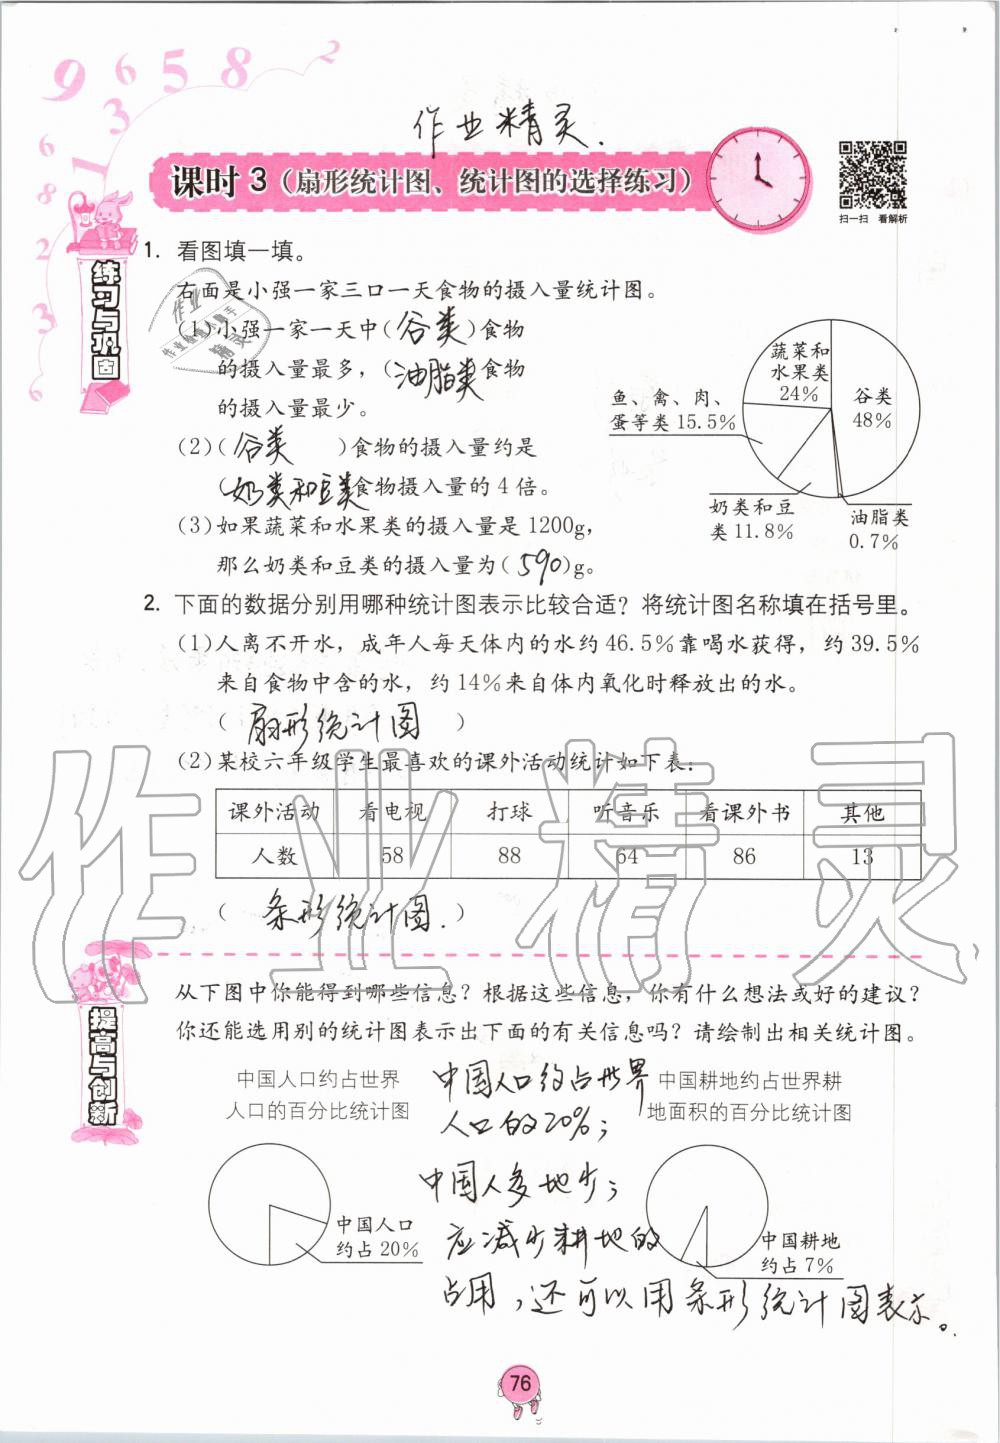 作业精灵.
课时3（扇形统计图、统计图的选择练习）
扫一扫 看解析
练习与巩固
1. 看图填一填。
右面是小强一家三口一天食物的摄入量统计图。
(1)小强一家一天中(谷类)食物
的摄入量最多，(油脂类)食物
的摄入量最少。
(2)(谷类)食物的摄入量约是
(奶类和豆类)食物摄入量的4倍。
(3)如果蔬菜和水果类的摄入量是1200g，
那么奶类和豆类的摄入量为(590)g。
蔬菜和
水果类
24%
谷类
48%
鱼、禽、肉、
蛋等类15.5%
奶类和豆
类11.8%
油脂类
0.7%
2. 下面的数据分别用哪种统计图表示比较合适？将统计图名称填在括号里。
(1)人离不开水，成年人每天体内的水约46.5%靠喝水获得，约39.5%
来自食物中含的水，约14%来自体内氧化时释放出的水。
(扇形统计图)
(2)某校六年级学生最喜欢的课外活动统计如下表：
课外活动 看电视 打球 听音乐 看课外书 其他
人数 58 88 64 86 13
(条形统计图.)
作业精灵
提高与创新
从下图中你能得到哪些信息？根据这些信息，你有什么想法或好的建议？
你还能选用别的统计图表示出下面的有关信息吗？请绘制出相关统计图。
中国人口约占世界
人口的百分比统计图
中国人口
约占20%
中国耕地约占世界耕
地面积的百分比统计图
中国耕地
约占7%
中国人口约占世界
人口的20%；
中国人多地少；
应减少耕地的
占用，还可以用条形统计图表示。
76